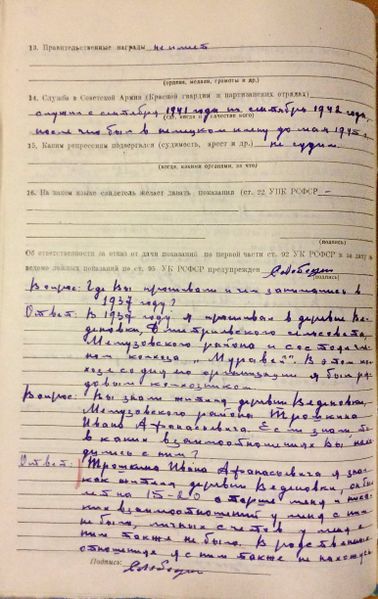 13. Правительственные награды не имеет
(ордена, медали, грамоты и др.)
14. Служба в Советской Армии (Красной гвардии и партизанских отрядах)
служил с сентября 1941 года по сентябрь 1942 года,
(где, когда и в качестве кого)
после чего был в немецком плену до мая 1945 г.
15. Каким репрессиям подвергался (судимость, арест и др.) не судим.
(когда, какими органами, за что)
16. На каком языке свидетель желает давать показания (ст. 22 УПК РСФСР –
(подпись)
Об ответственности за отказ от дачи показаний по первой части ст. 92 УК РСФСР и за дачу за-
ведомо ложных показаний по ст. 95 УК РСФСР предупрежден
(подпись)
Вопрос: Где Вы проживали и чем занимались в
1937 году?
Ответ: В 1937 году я проживал в деревне Ве-
деновки, Дмитриевского сельсовета,
района и состоял чле-
ном колхоза „Муравей". В этом кол-
хозе со дня его организации я был ря-
довым колхозником.
Вопрос: Вы знали жителя деревни Веденовки,
района Трошкина
Ивана Афанасьевича. Если знали то
в каких взаимоотношениях Вы нахо-
дились с ним?
Ответ: Трошкина Ивана Афанасьевича я знал
как жителя деревни Веденовки, он был
лет на 15-20 старше меня и ника-
ких взаимоотношений у меня с ним
не было, личных счетов у меня с
ним также не было. В родственных
отношениях я с ним также не нахожусь
Подпись: